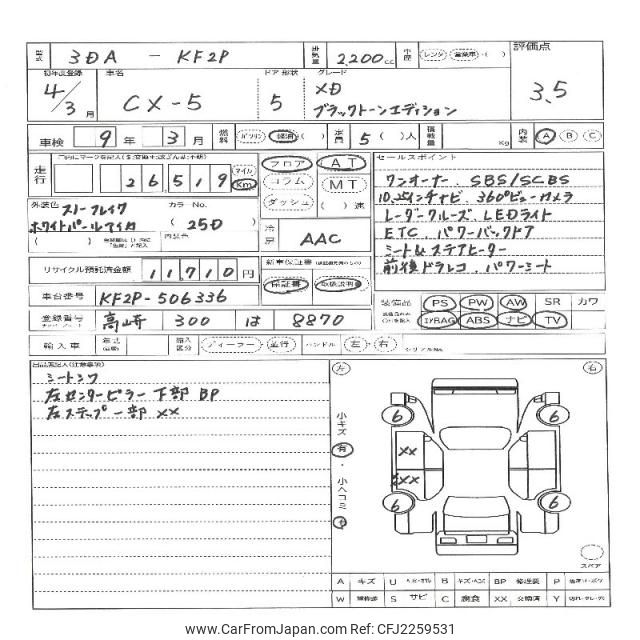 型式 3DA - KF2P 排気量 2,200cc 車歴 レンタ 営業車 ( ) 評価点
初年度登録 車名 ドア 形状 グレード
4/3月 CX-5 5 XD ブラックトーンエディション 3.5
車検 9年 3月 燃料 ガソリン 軽油 ( ) 定員 5( )人 積載量 Kg 内装 A B C
走行 26,519 マイル Km フロア AT セールスポイント
コラム MT ワンオーナー SBS/SCBS
ダッシュ ( )速 10.25インチナビ 360°ビューカメラ
外装色 スノーフレイク カラーNo. レーダークルーズ LEDライト
ホワイトパールマイカ (25D) 冷房 AAC ETC パワーバックドア
( ) 内装色 シート&ステアヒーター
リサイクル預託済金額 11710円 新車保証書 保証書 取扱説明書 前後ドラレコ パワーシート
車台番号 KF2P-506336 装備品 PS PW AW SR カワ
登録番号 高崎 300 は 8870 エアBAG ABS ナビ TV
輸入車 年式 輸入区分 ディーラー 並行 ハンドル 左・右 シリアルNo.
出品店記入(注意事項) 左 右
シートシワ
左センターピラー下部 BP
左ステップ一部 XX
小キズ 有・小ヘコミ
6 6
XX
XX
6 6
スペア
A キズ U B キズ・ヘコミ BP 修理跡 P
W 修理跡 S サビ C 腐食 XX 交換済 Y
www.CarFromJapan.com STOCK No: CFJ2259531